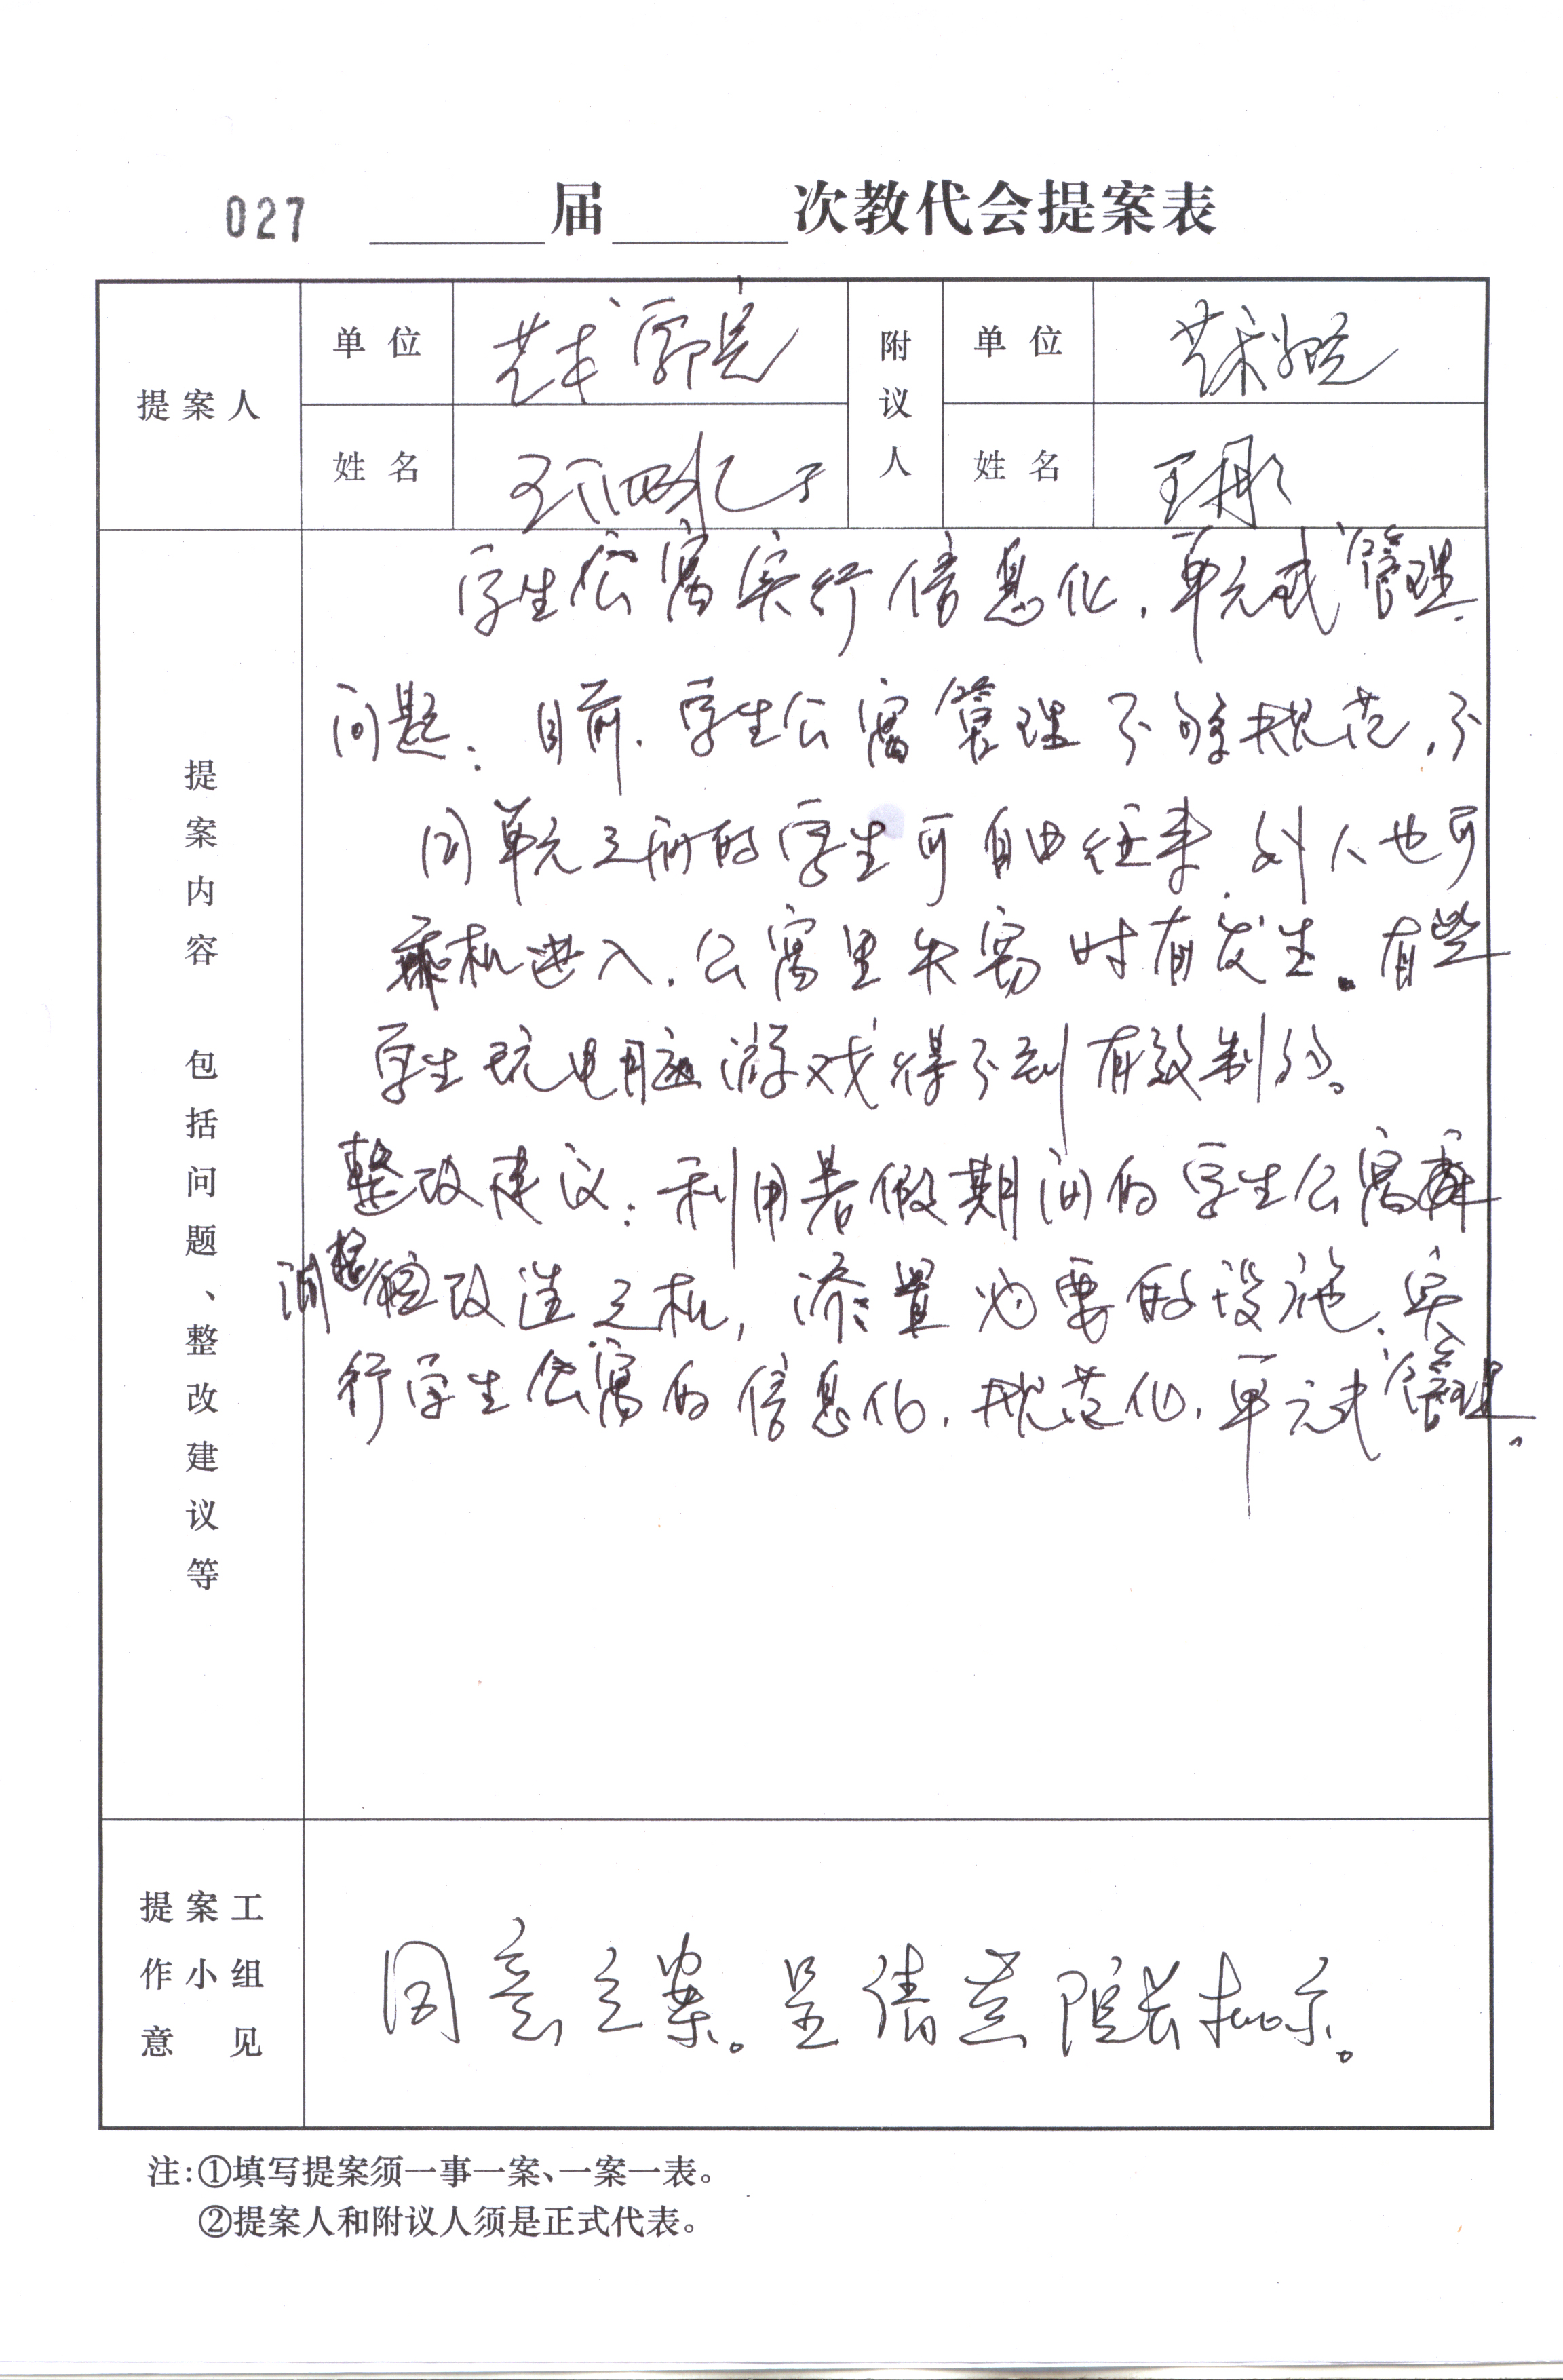 027 届 次教代会提案表
提案人 单位 艺术学院 附议人 单位 艺术学院
姓名 姓名 王彤
提案内容 包括问题、整改建议等
学生公寓实行信息化,单元式管理
问题:目前,学生公寓管理不够规范,不
同单元之间的学生可自由往来,外人也可
乘机进入,公寓里失窃时有发生。有些
学生玩电脑游戏得不到有效制约。
整改建议:利用暑假期间的学生公寓
调整改造之机,添置必要的设施,实
行学生公寓的信息化,规范化,单元式管理。
提案工作小组意见
同意立案。呈请 院长批示。
注:①填写提案须一事一案、一案一表。
②提案人和附议人须是正式代表。